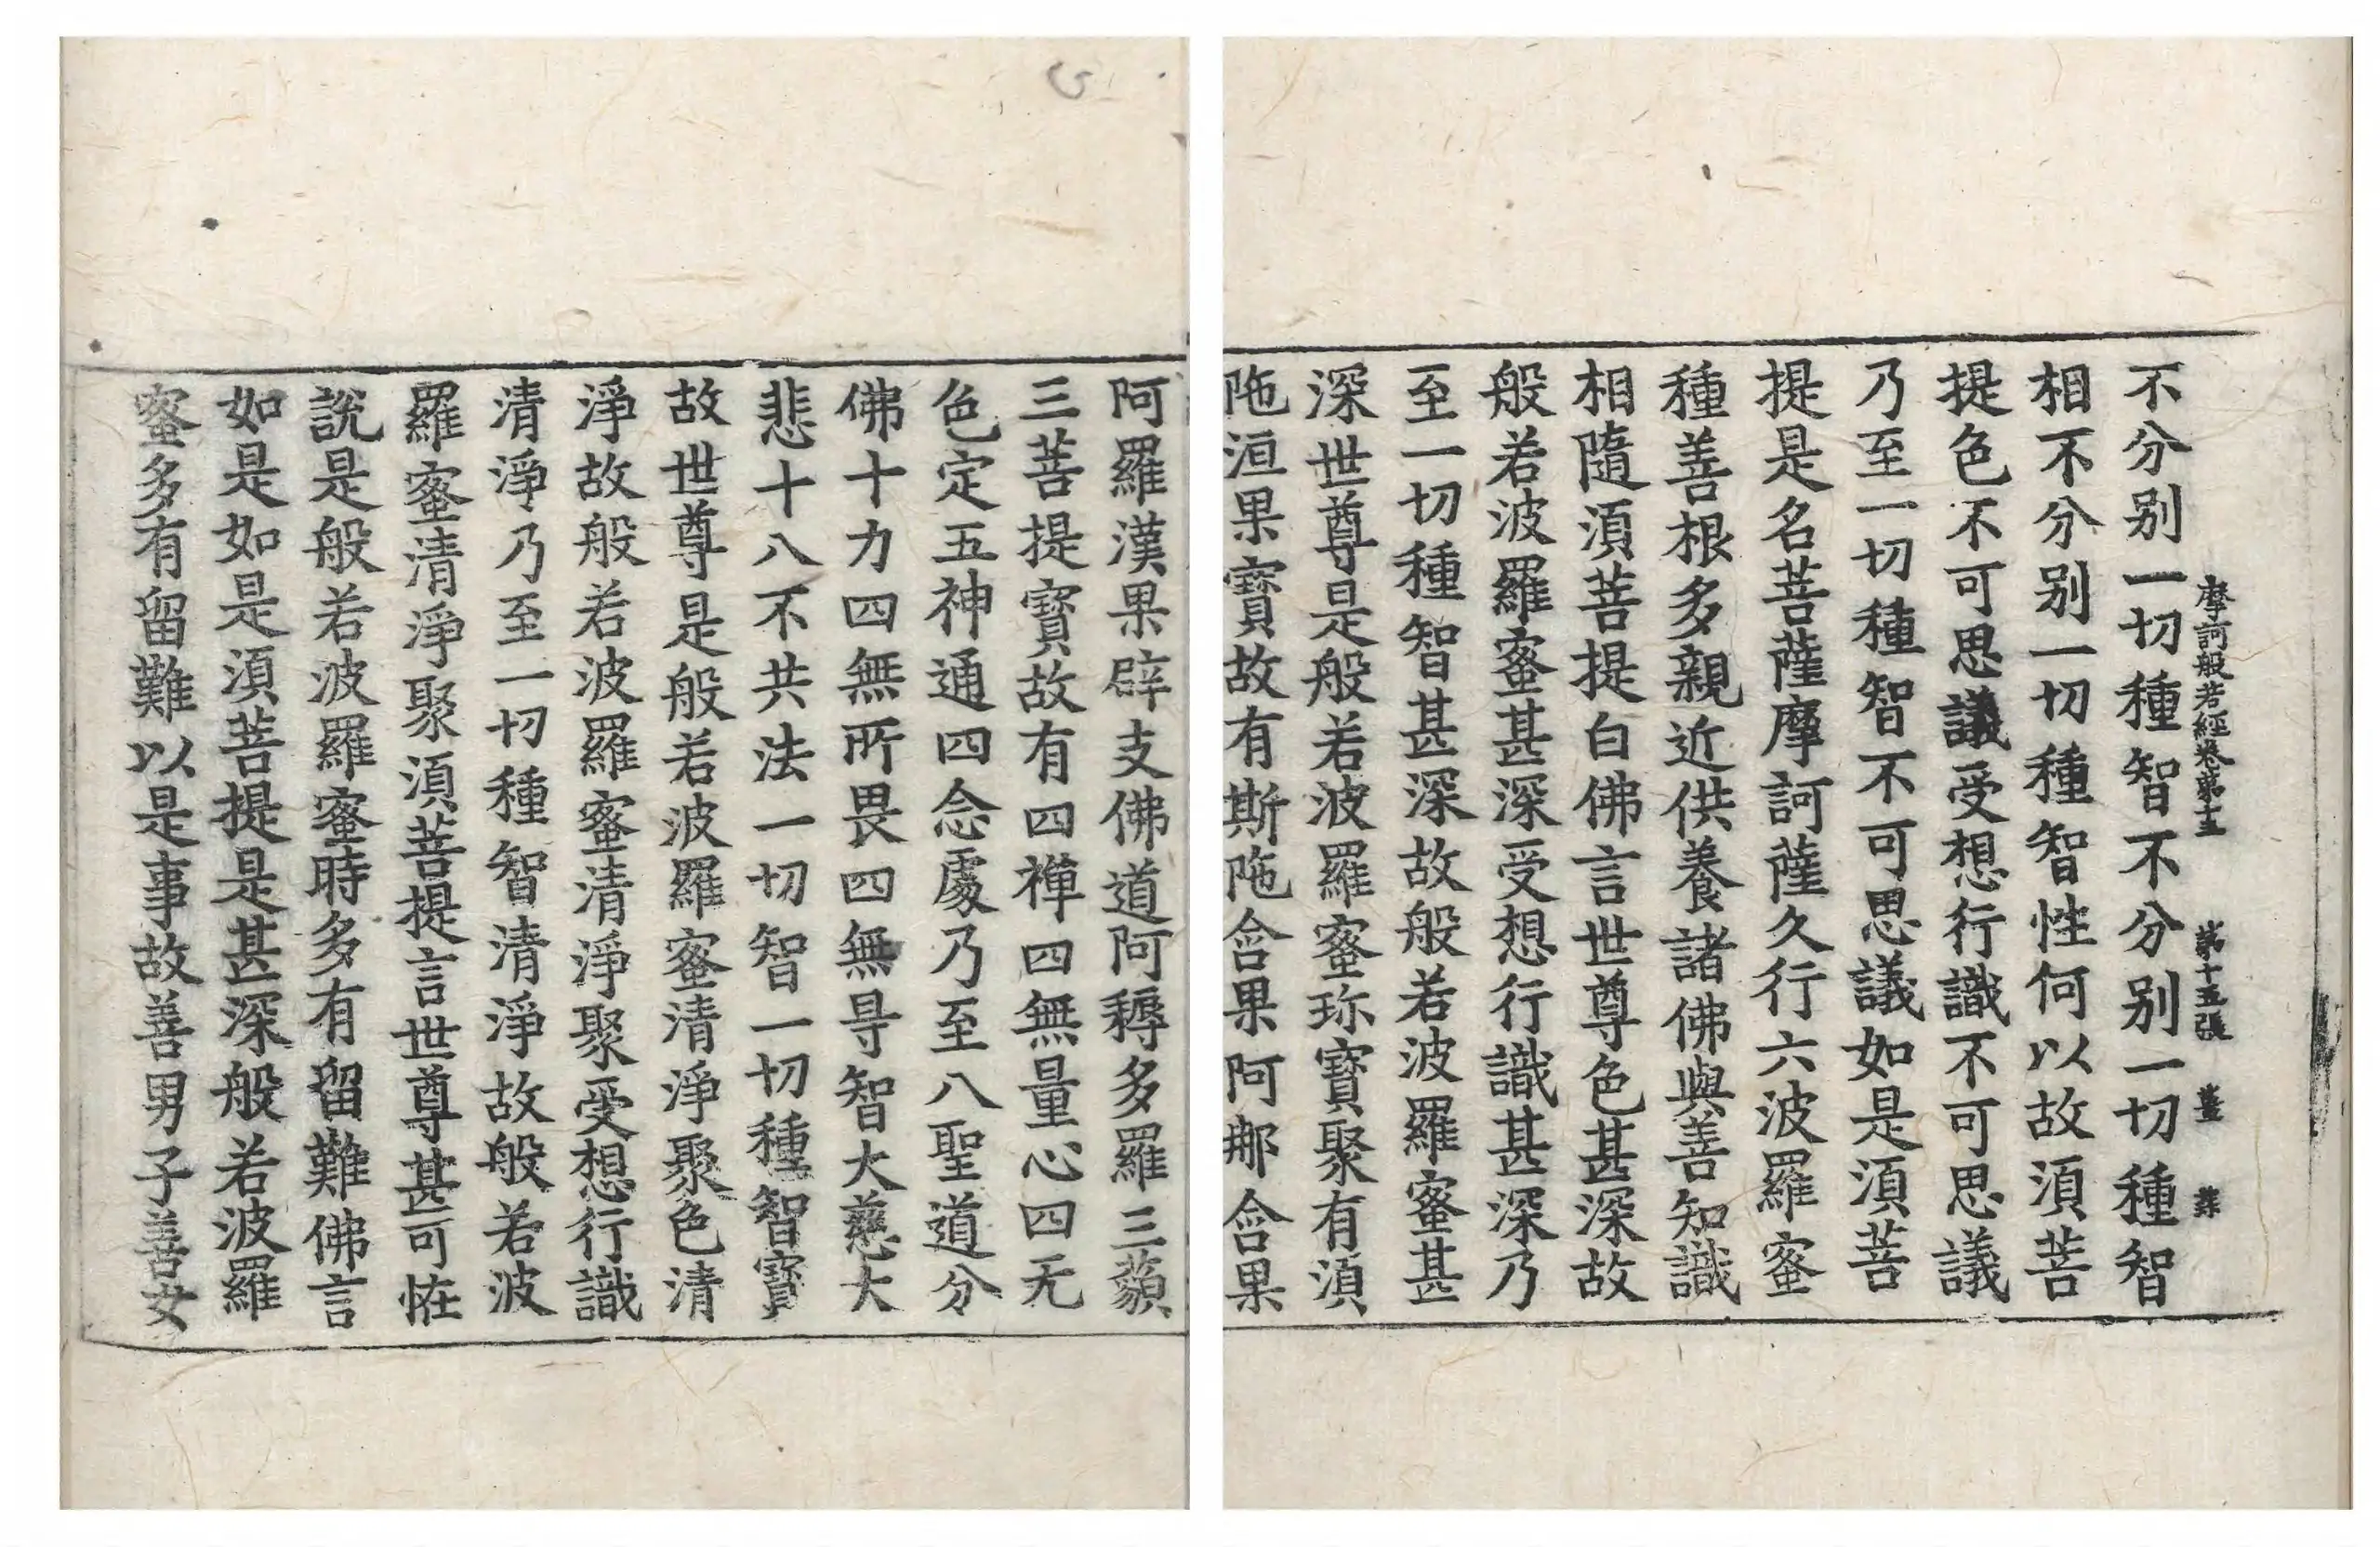 摩訶般若經卷第十五 第十五張 菜
不分別一切種智不分別一切種智
相不分別一切種智性何以故須菩
提色不可思議受想行識不可思議
乃至一切種智不可思議如是須菩
提是名菩薩摩訶薩久行六波羅蜜
種善根多親近供養諸佛與善知識
相隨須菩提白佛言世尊色甚深故
般若波羅蜜甚深受想行識甚深乃
至一切種智甚深故般若波羅蜜甚
深世尊是般若波羅蜜珎寶聚有須
陁洹果寶故有斯陁含果阿那含果
阿羅漢果辟支佛道阿耨多羅三藐
三菩提寶故有四禪四無量心四无
色定五神通四念處乃至八聖道分
佛十力四無所畏四無㝵智大慈大
悲十八不共法一切智一切種智寶
故世尊是般若波羅蜜清淨聚色清
淨故般若波羅蜜清淨聚受想行識
清淨乃至一切種智清淨故般若波
羅蜜清淨聚須菩提言世尊甚可恠
說是般若波羅蜜時多有留難佛言
如是如是須菩提是甚深般若波羅
蜜多有留難以是事故善男子善女